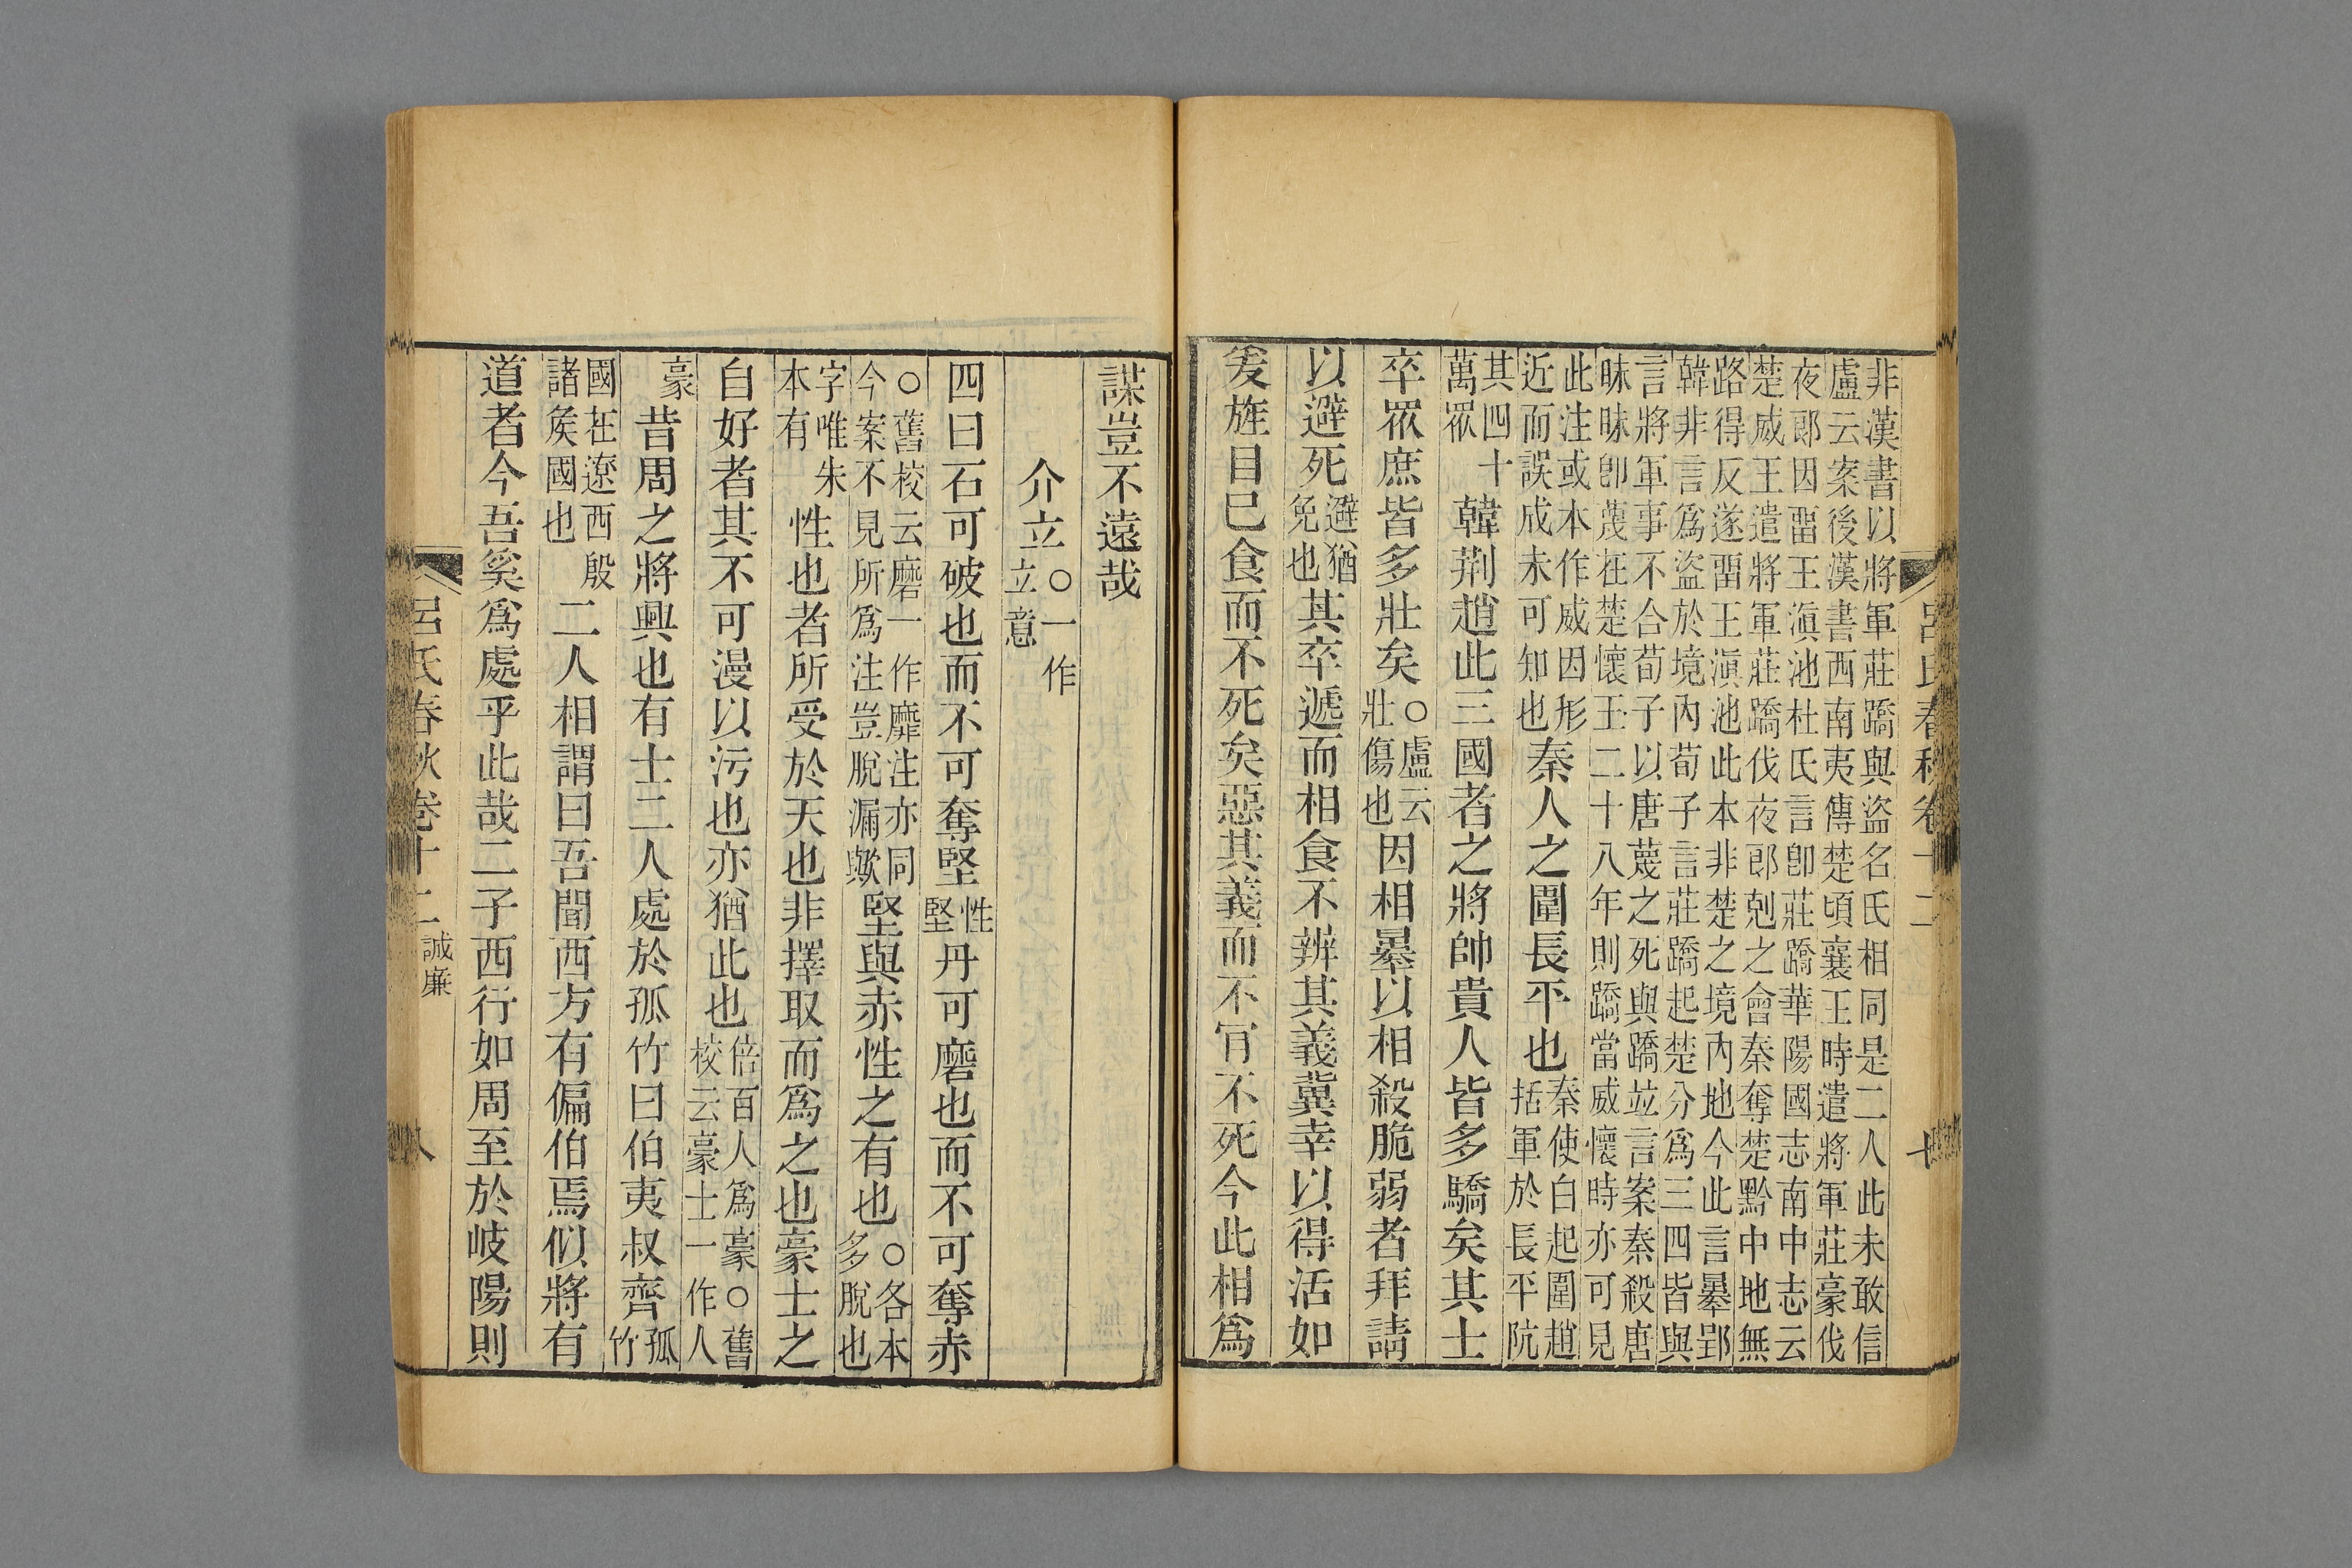 非漢書以將軍莊蹻與盜名氏相同是二人此未敢信
盧云案後漢書西南夷傳楚頃襄王時遣將軍莊豪伐
夜郎因畱王滇池杜氏言卽莊蹻華陽國志南中志云
楚威王遣將軍莊蹻伐夜郎剋之會秦奪楚黔中地無
路得反遂畱王滇池此本非楚之境內地今此言㬥郢
韓非言爲盜於境內荀子言莊蹻起楚分爲三四皆與
言將軍事不合荀子以唐蔑之死與蹻竝言案秦殺唐
昧昧卽蔑在楚懷王二十八年則蹻當威懷時亦可見
此注或本作威因形
近而誤成未可知也秦人之圍長平也秦使白起圍趙
括軍於長平阬
其四十
萬眾韓荆趙此三國者之將帥貴人皆多驕矣其士
卒眾庶皆多壯矣○盧云
壯傷也因相㬥以相殺脆弱者拜請
以避死避猶
免也其卒遞而相食不辨其義冀幸以得活如
爰旌目已食而不死矣惡其義而不肎不死今此相爲
呂氏春秋卷十二
七
謀豈不遠哉
介立○一作
立意
四曰石可破也而不可奪堅性
堅丹可磨也而不可奪赤
○舊校云磨一作靡注亦同
今案不見所爲注豈脫漏歟堅與赤性之有也○各本
多脫也
字唯朱
本有性也者所受於天也非擇取而爲之也豪士之
自好者其不可漫以污也亦猶此也倍百人爲豪○舊
校云豪士一作人
豪昔周之將興也有士二人處於孤竹曰伯夷叔齊孤
竹
國在遼西殷
諸矦國也二人相謂曰吾聞西方有偏伯焉似將有
道者今吾奚爲處乎此哉二子西行如周至於岐陽則
呂氏春秋卷十二 誠廉
八